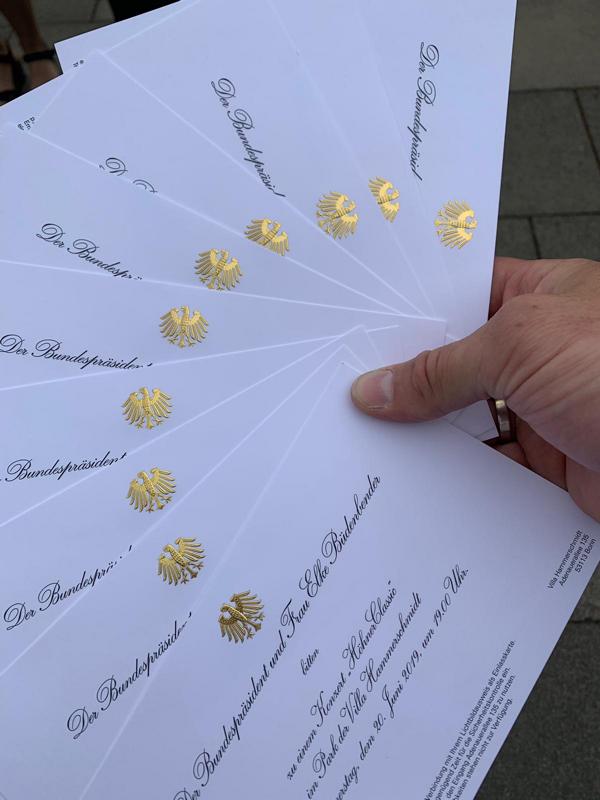 Der Bundespräsid
Der Bundespräsi
Der Bundesp
Der Bundespräsiden
Bundespräsident
Der Bundesprä
Der Bundespräside
Der Bundespräsident und Frau Elke Büdenbender
bitten
zu einem Konzert „HöhnerClassic“
im Park der Villa Hammerschmidt
nerstag, dem 20. Juni 2019, um 19.00 Uhr.
Villa Hammerschmidt
Adenauerallee 135
53113 Bonn
Verbindung mit Ihrem Lichtbildausweis als Einlasskarte.
genügend Zeit für die Sicherheitskontrolle ein.
den Eingang Adenauerallee 135 zu nutzen.
keiten stehen nicht zur Verfügung.